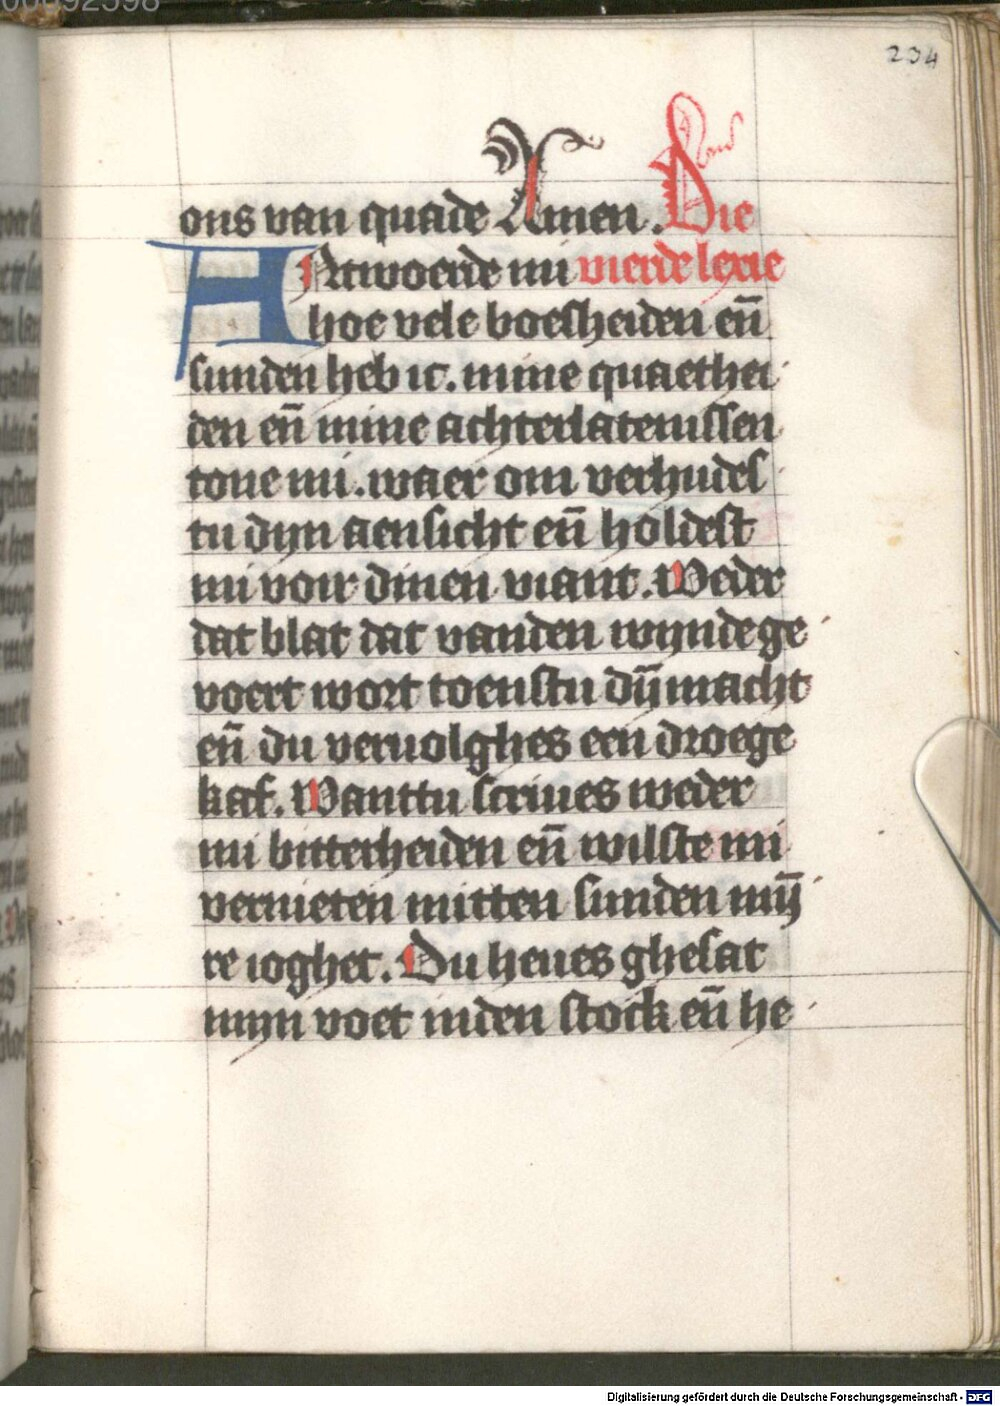 234
ons van quade Amen. Die
Antwoerde mi vierde lexie
hoe vele boesheiden en̄
sunden heb ic. mine quaethei
den en̄ mine achterlatenissen
tone mi. waer om verhudes
tu dijn aensicht en̄ holdest
mi voir dinen viant. Weder
dat blat dat vanden wijnde ge
voert wort toenstu dij̄ macht
en̄ du veruolghes een droege
kaf. Wanttu scriues weder
mi bitterheiden en̄ wilste mi
vernieten mitten sunden mij̄
re ioghet. Du heues ghesat
mijn voet inden stock en̄ he
Digitalisierung gefördert durch die Deutsche Forschungsgemeinschaft - DFG